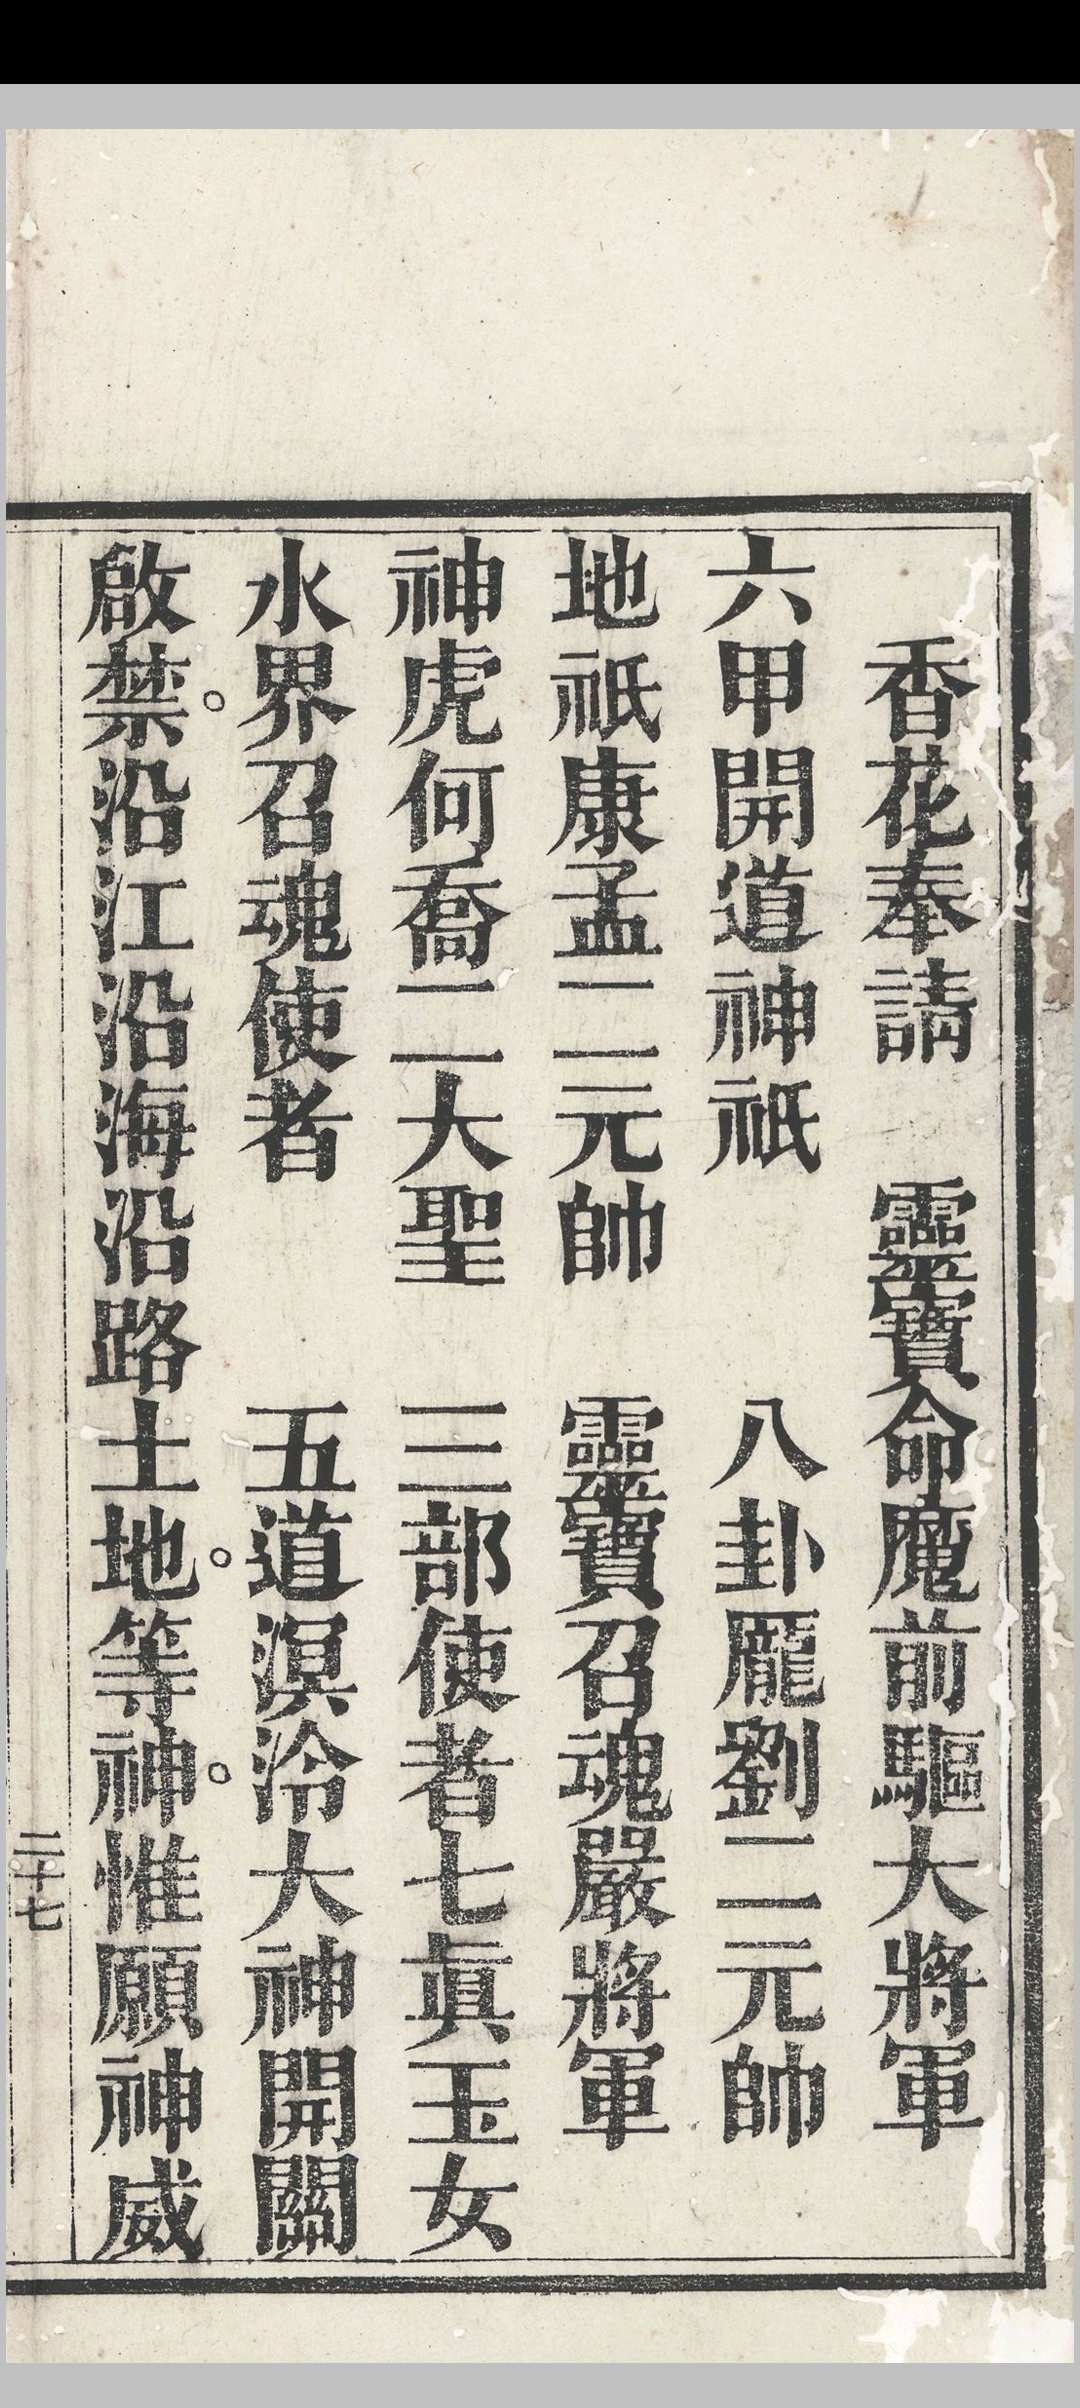 香花奉請　靈寶命魔前驅大將軍
六甲開道神祇　八卦龎劉二元帥
地祇康孟二元帥　靈寶召魂嚴將軍
神虎何喬二大聖　三部使者七眞玉女
水界召魂使者　五道溟泠大神開關
啟禁。沿江沿海沿路土地。等神。惟願神威
二十七